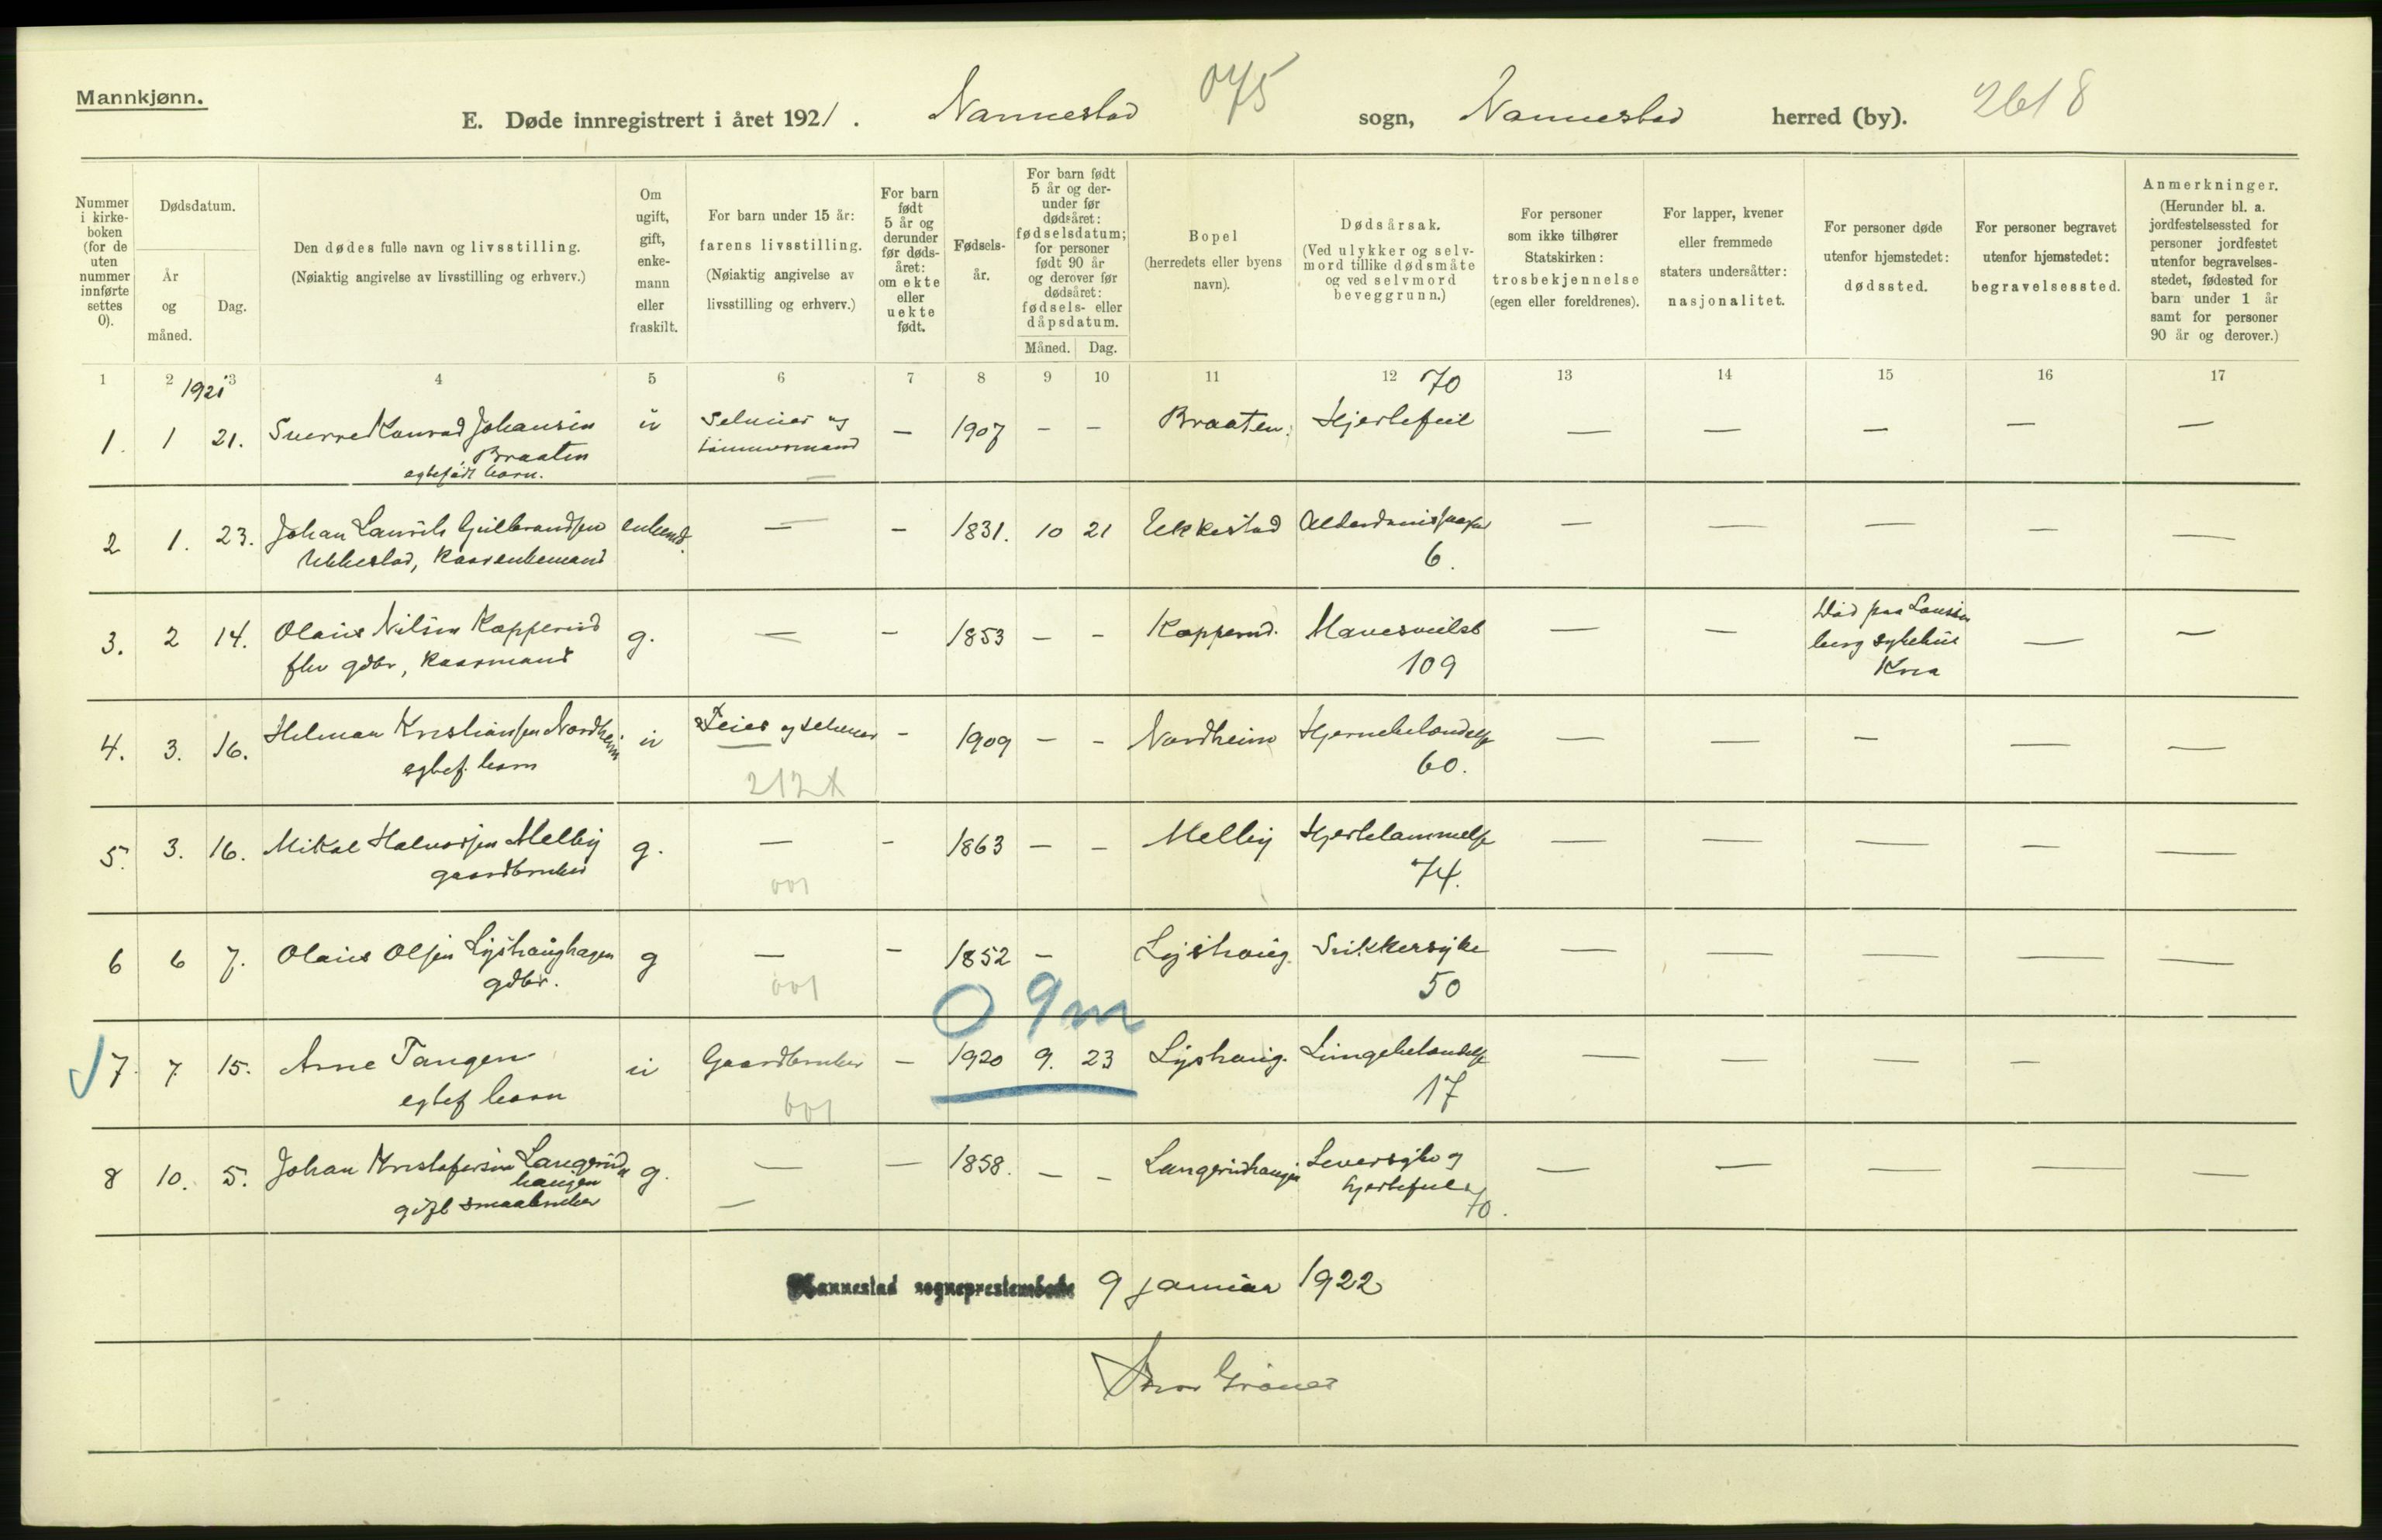 Mannkjønn.
E. Døde innregistrert i året 1921. Nannestad 075 sogn, Nannestad herred (by). 2618
Nummer i kirkeboken (for de uten nummer innførte settes 0).
Dødsdatum.
År og måned.
Dag.
Den dødes fulle navn og livsstilling.
(Nøiaktig angivelse av livsstilling og erhverv.)
Om ugift, gift, enkemann eller fraskilt.
For barn under 15 år:
farens livsstilling.
(Nøiaktig angivelse av livsstilling og erhverv.)
For barn født 5 år og derunder før dødsåret: om ekte eller uekte født.
Fødselsår.
For barn født 5 år og derunder før dødsåret: fødselsdatum; for personer født 90 år og derover før dødsåret: fødsels- eller dåpsdatum.
Måned. Dag.
Bopel
(herredets eller byens navn).
Dødsårsak.
(Ved ulykker og selvmord tillike dødsmåte og ved selvmord beveggrunn.)
For personer som ikke tilhører Statskirken: trosbekjennelse (egen eller foreldrenes).
For lapper, kvener eller fremmede staters undersåtter: nasjonalitet.
For personer døde utenfor hjemstedet: dødssted.
For personer begravet utenfor hjemstedet: begravelsessted.
Anmerkninger.
(Herunder bl. a. jordfestelsessted for personer jordfestet utenfor begravelsesstedet, fødested for barn under 1 år samt for personer 90 år og derover.)
1 2 3 4 5 6 7 8 9 10 11 12 13 14 15 16 17
1921 70
1. 1 21. Sverre Konrad Johansen u Selmier og — 1907 - - Braaten. Hjertefeil — — — — —
Braaten tømmermand
egtefødt barn. —
2 1. 23. Johan Laurits Gulbrandsen enkemd. — - 1831. 10 21 Ukkestad — — — — —
Ukkestad, Kaarenkemand 6.
3. 2 14. Olaus Nilsen Kopperud g. — - 1853 - - Kopperud. Mavesvulst — — Død paa — —
fhv gdbr, Kaarmand 109 sykehus
Kria
4. 3. 16. Hilman Kristiansen Nordheim u Feier og selmier - 1909 - - Nordheim Hjernebetændelse — — — — —
egtef. barn 212 60.
5. 3. 16. Mikal Halvorsen Melby g. — - 1863 - - Melby Hjertelammelse — — — — —
gaardbruker 001 74.
6 6 7. Olaus Olsen Lyshaughagen g — - 1852 - Lyshaug. Sukkersyke — — — — —
gdbr. 001 50
0 9m
7. 7 15. Arne Tangen u Gaardbruker - 1920 9. 23 Lyshaug. Lungebetændelse — — — —
egtef barn 001 17
8 10. 5. Johan Kristofersen Langerud g. — — 1858. - - Langerudhaugen Leversyke og — — — — —
haugen hjertefeil
smaabruker — 70.
Nannestad sogneprestembede 9 januar 1922